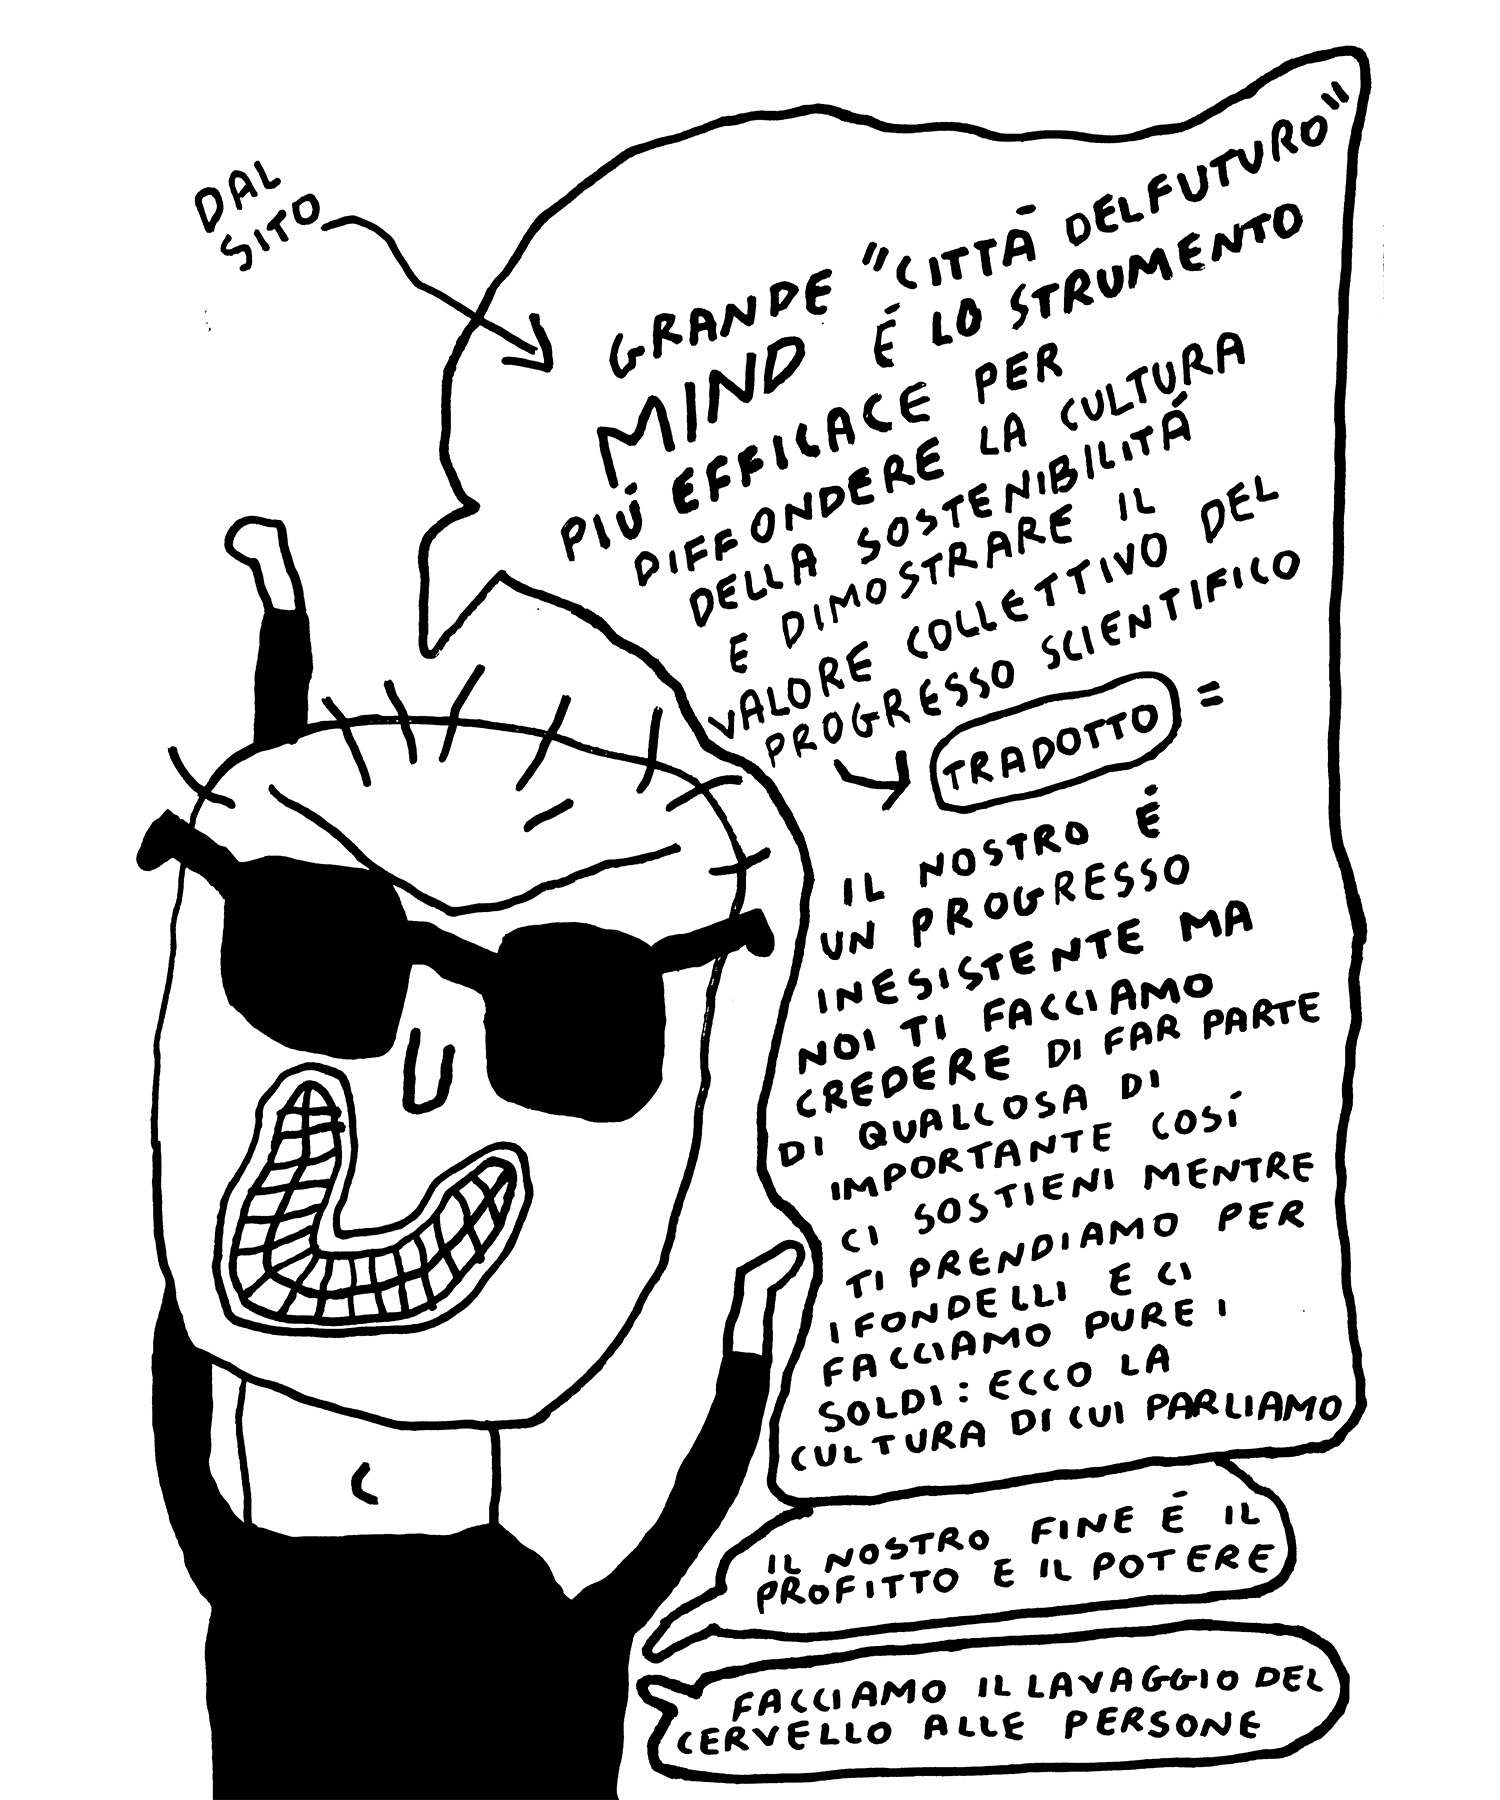 DAL
SITO
GRANDE "CITTÀ DEL FUTURO"
MIND É LO STRUMENTO
PIÚ EFFICACE PER
DIFFONDERE LA CULTURA
DELLA SOSTENIBILITÁ
E DIMOSTRARE IL
VALORE COLLETTIVO DEL
PROGRESSO SCIENTIFICO
TRADOTTO =
IL NOSTRO É
UN PROGRESSO
INESISTENTE MA
NOI TI FACCIAMO
CREDERE DI FAR PARTE
DI QUALCOSA DI
IMPORTANTE COSÍ
CI SOSTIENI MENTRE
TI PRENDIAMO PER
I FONDELLI E CI
FACCIAMO PURE I
SOLDI: ECCO LA
CULTURA DI CUI PARLIAMO
IL NOSTRO FINE É IL
PROFITTO E IL POTERE
FACCIAMO IL LAVAGGIO DEL
CERVELLO ALLE PERSONE